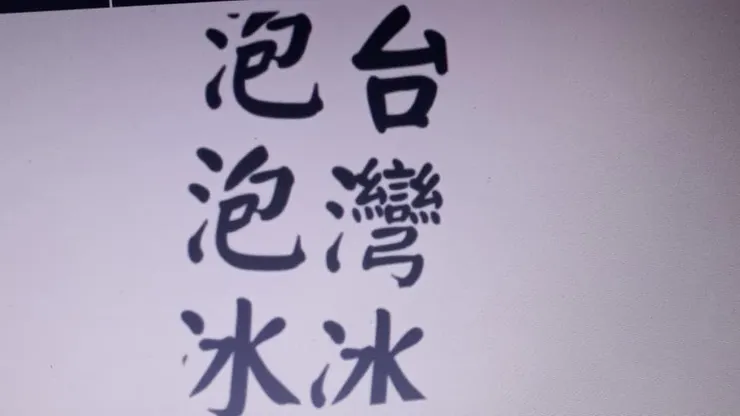 台灣冰
泡泡冰